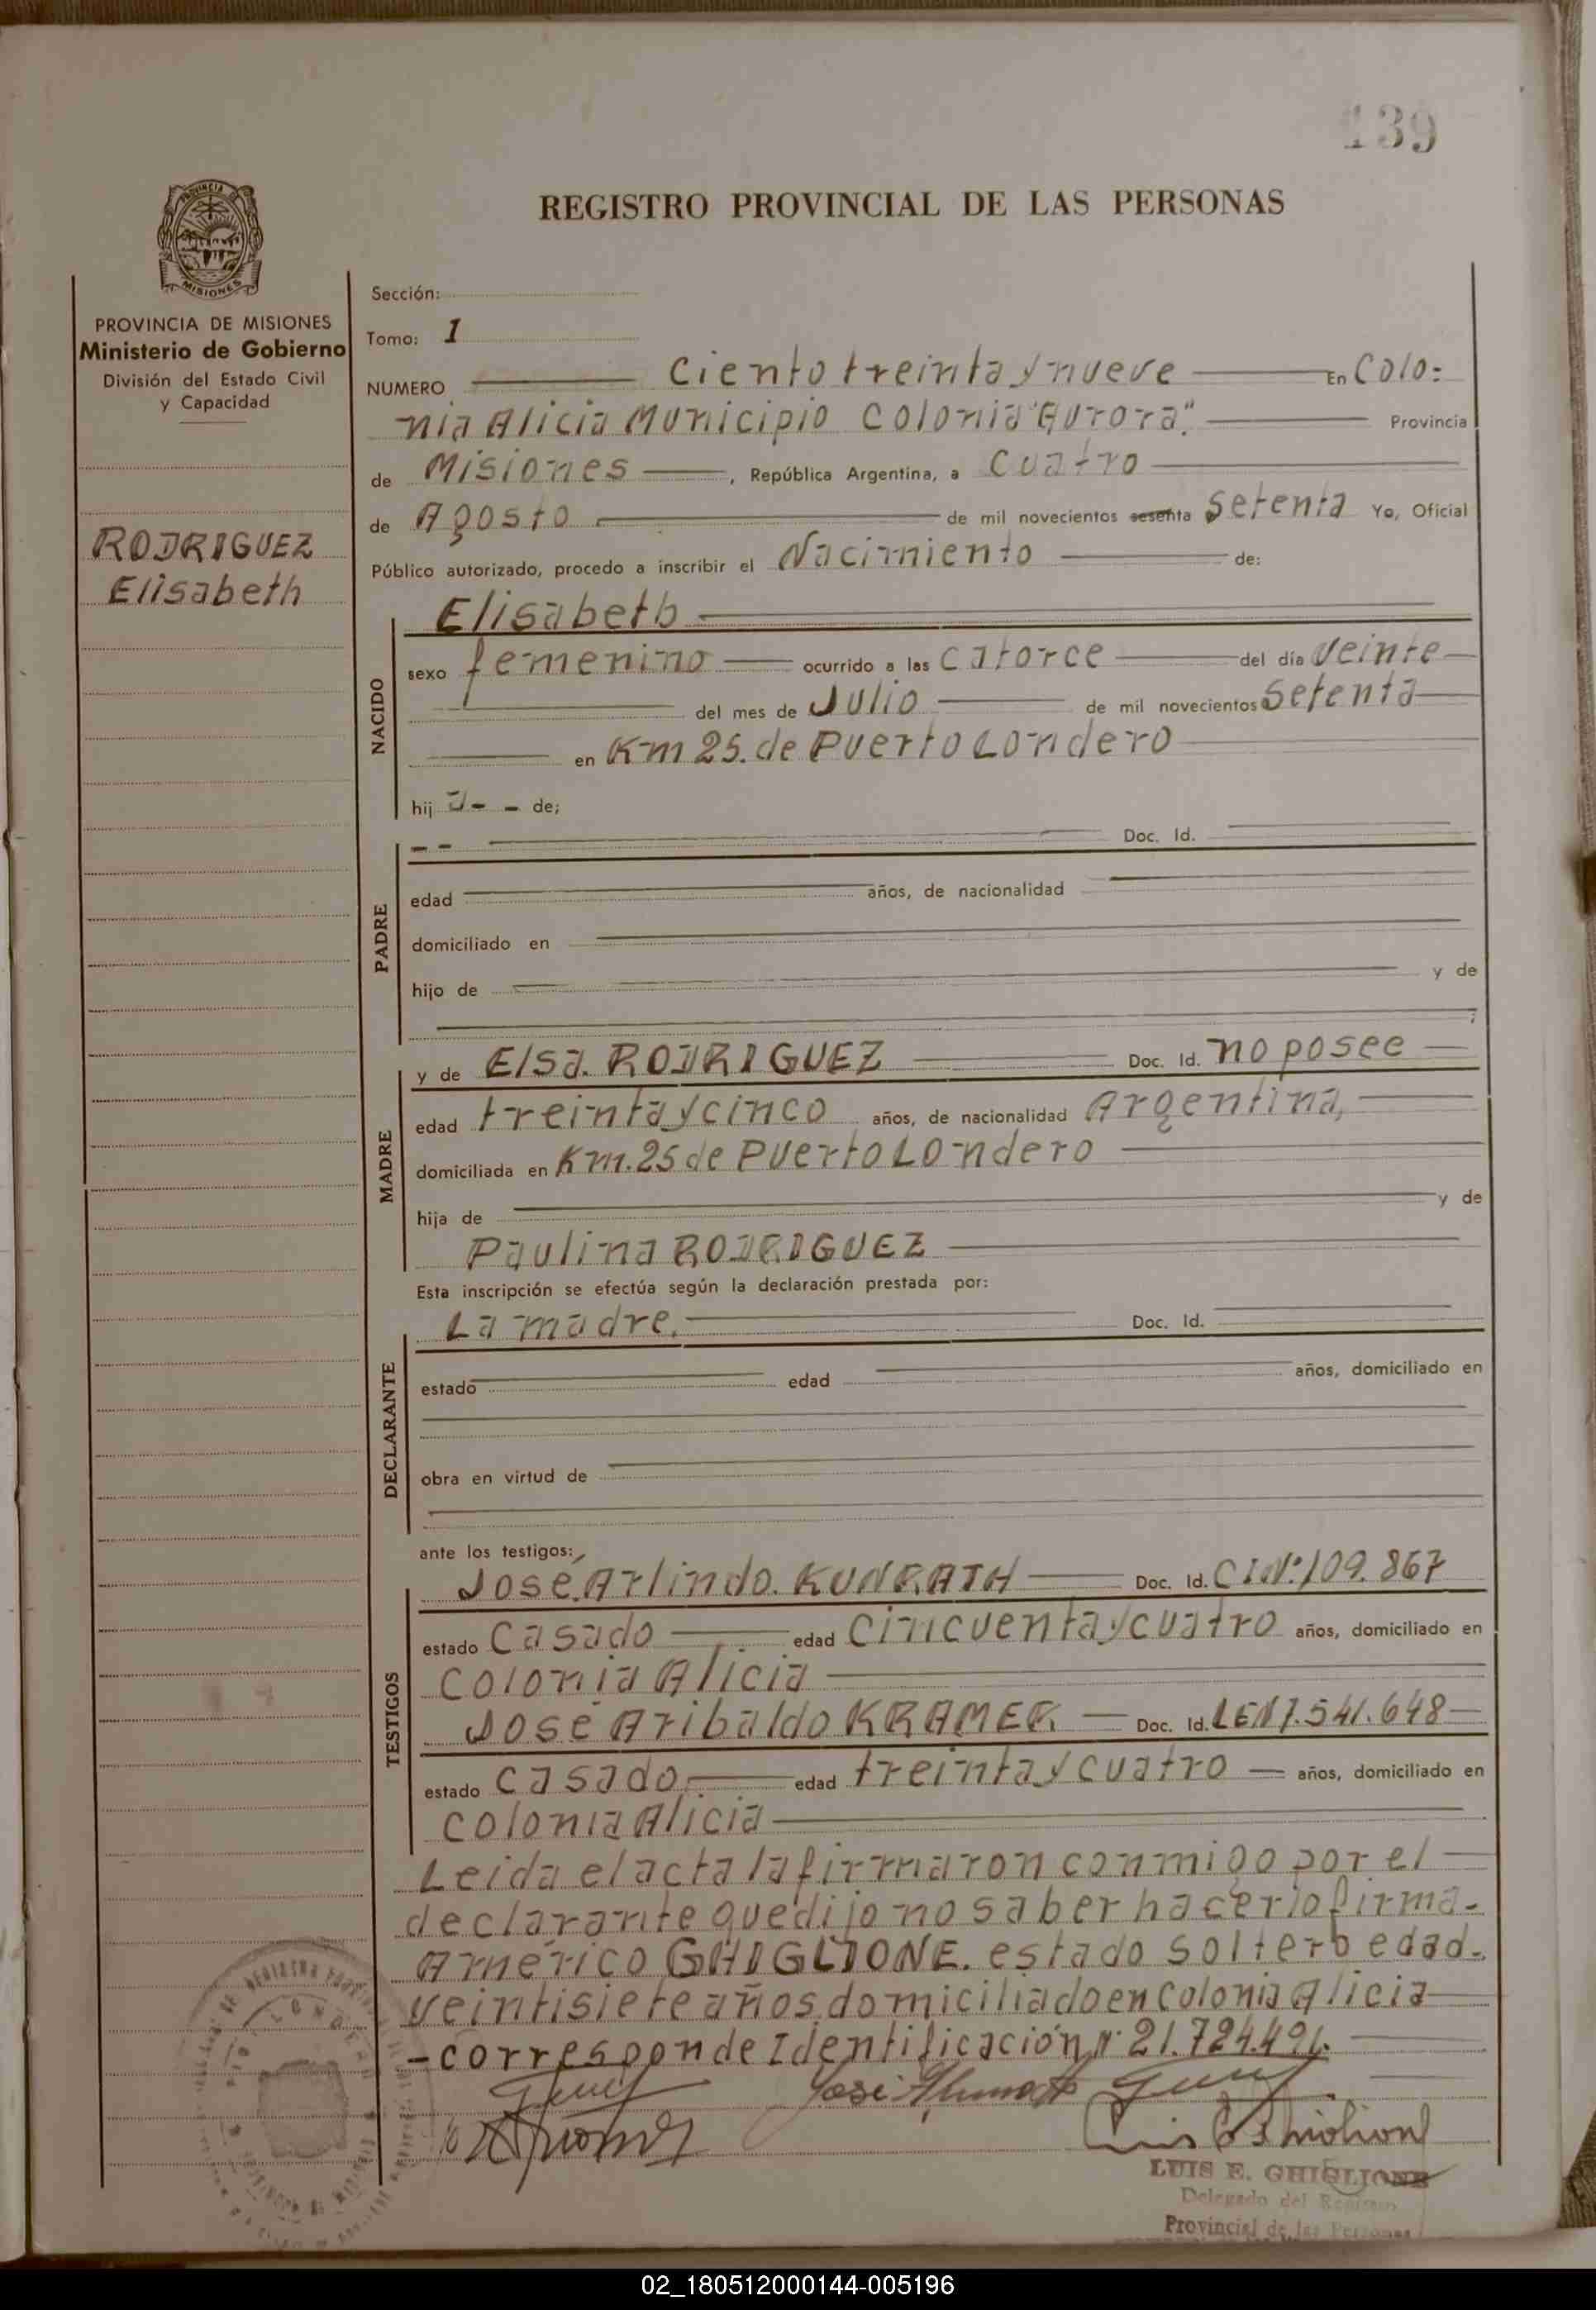 139
REGISTRO PROVINCIAL DE LAS PERSONAS
PROVINCIA DE MISIONES
Ministerio de Gobierno
División del Estado Civil
y Capacidad
RODRIGUEZ
Elisabeth
Sección:
Tomo: 1
NUMERO Ciento treinta y nueve En Colo=
nia Alicia Municipio Colonia "Aurora". Provincia
de Misiones, República Argentina, a Cuatro
de Agosto de mil novecientos sesenta Setenta Yo, Oficial
Público autorizado, procedo a inscribir el Nacimiento de:
NACIDO
Elisabeth
sexo femenino ocurrido a las Catorce del día Veinte
del mes de Julio de mil novecientos Setenta
en Km 25. de Puerto Londero
hij a - - de;
PADRE
- - Doc. Id.
edad años, de nacionalidad
domiciliado en
hijo de y de
;
MADRE
y de Elsa. RODRIGUEZ Doc. Id. no posee
edad treinta y cinco años, de nacionalidad Argentina,
domiciliada en Km. 25 de Puerto Londero
hija de y de
Paulina RODRIGUEZ
Esta inscripción se efectúa según la declaración prestada por:
DECLARANTE
La madre. Doc. Id.
estado edad años, domiciliado en
obra en virtud de
ante los testigos:
TESTIGOS
José Arlindo. KUNRATH Doc. Id. C I.Nº 109.867
estado Casado edad Cincuenta y cuatro años, domiciliado en
Colonia Alicia
José Aribaldo KRAMER Doc. Id. LEN 7.541.648
estado Casado edad treinta y cuatro años, domiciliado en
Colonia Alicia
Leida el acta la firmaron conmigo por el
declarante que dijo no saber hacerlo firma-
Américo GHIGLIONE. estado soltero edad.
Veintisiete años. domiciliado en Colonia Alicia
-corresponde Identificación Nº 21.724.491.
José
LUIS E. GHIGLIONE
Delegado del Registro
Provincial de las Personas
02_180512000144-005196